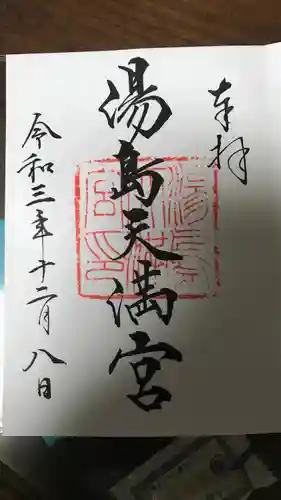 奉拝
湯島天満宮
令和三年十二月八日